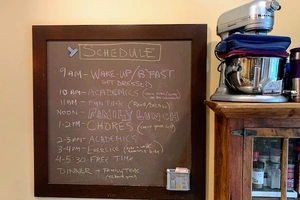 SCHEDULE
9AM - WAKE-UP/B'FAST
GET DRESSED
10AM - ACADEMICS
11AM - FUN TIME
NOON - FAMILY LUNCH
1-2PM - CHORES
2-3PM - ACADEMICS
3-4PM - EXERCISE
4-5:30 FREE TIME
DINNER + FAMILY TIME